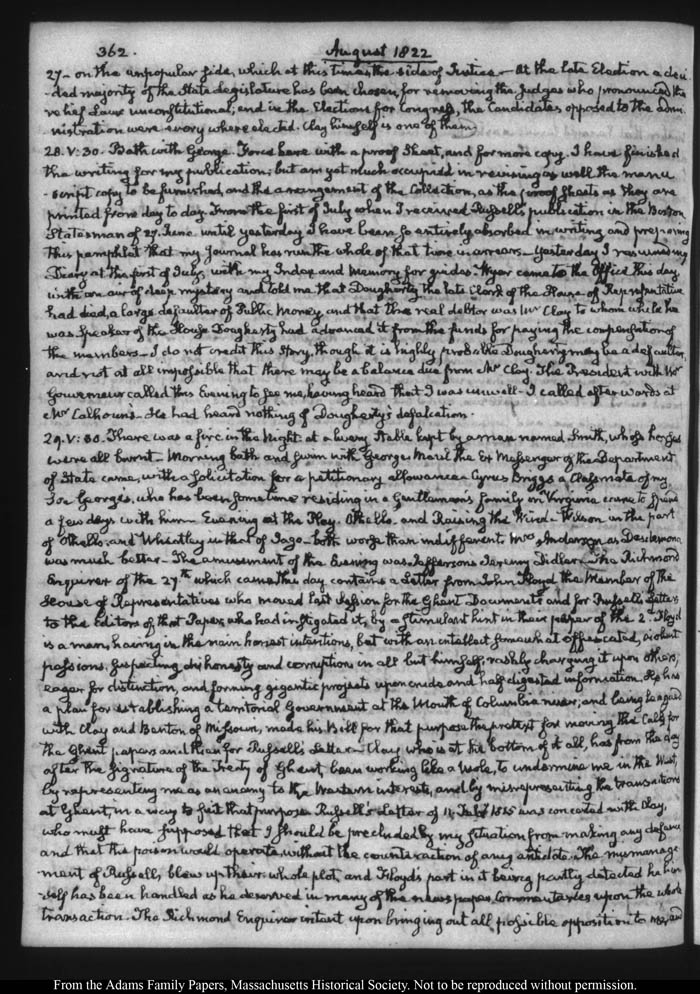 362. August 1822
27— on the unpopular side, which at this time is the side of Justice— At the late Election a deci-
ded majority of the State Legislature has been chosen, for removing the Judges who pronounced the
relief Laws unconstitutional; and in the Elections for Congress, the Candidates opposed to the admi-
nistration were every where elected. Clay himself is one of them.
28. V:30. Bath with George. Force here with a proof Sheet, and for more copy. I have finished
the writing for my publication; but am yet much occupied in revising as well the manu
-script copy to be furnished, and the arrangement of the Collection, as the proof sheets as they are
printed from day to day. From the first of July when I received Russell's publication in the Boston
Statesman of 27. June until yesterday I have been so entirely absorbed in writing and preparing
this pamphlet that my Journal has run the whole of that time in arrears— Yesterday I resumed my
Diary at the first of July, with my Index and Memory for guides. Wyer came to the Office this day
with an air of deep mystery and told me that Dougherty the late Clerk of the House of Representatives
had died, a large defaulter of Public Money, and that the real debtor was Mr Clay to whom while he
was Speaker of the House Dougherty had advanced it from the funds for paying the compensation of
the members— I do not credit this Story, though it is highly probable Dougherty may be a defaulter,
and not at all impossible that there may be a balance due from Mr Clay. The President with Mr
Gouverneur called this Evening to see me, having heard that I was unwell— I called afterwards at
Mr Calhoun's— He had heard nothing of Dougherty's defalcation.
29. V:30. There was a fire in the Night at a livery Stable kept by a man named Smith, whose horses
were all burnt— Morning bath and swim with George. Maul the Ex Messenger of the Department
of State came, with a solicitation for a petitionary allowance. Cyrus Briggs a Classmate of my
Son George's, who has been sometime residing in a Gentleman's family in Virginia came to spend
a few days with him— Evening at the Play. Othello— and Raising the Wind— Wilson in the part
of Othello, and Wheatley in that of Iago— both worse than indifferent. Mrs Anderson as Desdemona
was much better— The amusement of the Evening was Jefferson's Jeremy Didler— The Richmond
Enquirer of the 27th which came this day contains a Letter from John Floyd the Member of the
House of Representatives who moved last Session for the Ghent Documents and for Russell's Letter,
to the Editors of that Paper, who had instigated it, by a stimulant hint in their paper of the 2d. Floyd
is a man, having in the main honest intentions, but with an intellect somewhat obfuscated, violent
passions, suspecting dishonesty and corruption in all but himself, rashly charging it upon others,
eager for distinction, and forming gigantic projects upon crude and half digested information. He has
a plan for establishing a territorial Government at the Mouth of Columbia river; and being leagued
with Clay and Benton of Missouri, made his Bill for that purpose the pretext for moving the Call for
the Ghent papers and then for Russell's Letter— Clay who is at the bottom of it all, has from the day
after the signature of the Treaty of Ghent, been working like a Mole, to undermine me in the West,
by representing me as an enemy to the Western interests, and by misrepresenting the transactions
at Ghent, in a way to suit that purpose. Russell's Letter of 11. Feby 1815 was concerted with Clay,
who must have supposed that I should be precluded by my situation from making any defence
and that the poison would operate without the counteraction of any antidote. The mismanage-
ment of Russell, blew up their whole plot, and Floyd's part in it being partly detected he him-
-self has been handled as he deserved in many of the newspaper commentaries upon the whole
transaction. The Richmond Enquirer intent upon bringing out all possible opposition to me, and
From the Adams Family Papers, Massachusetts Historical Society. Not to be reproduced without permission.